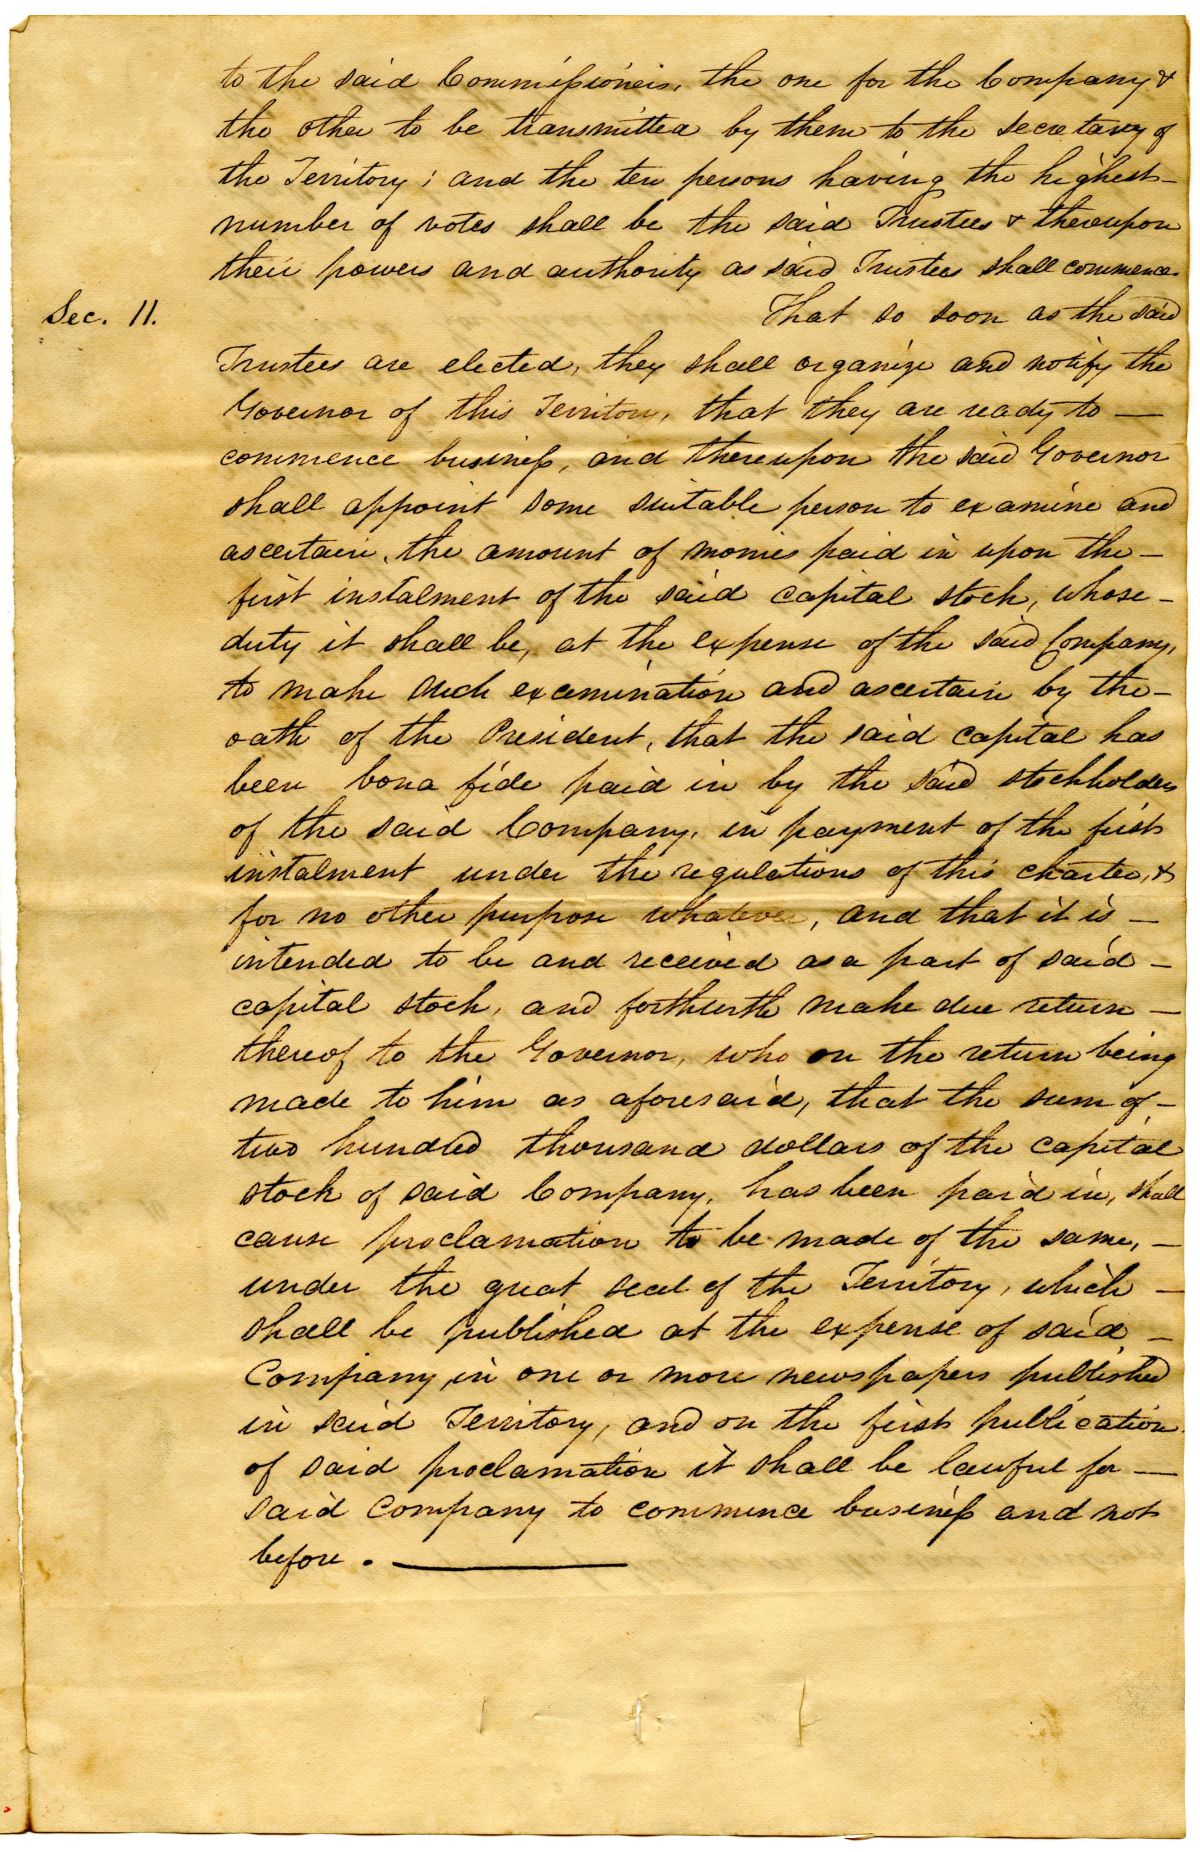 to the said Commissioners, the one for the Company &
the other to be transmitted by them to the secretary of
the Territory; and the ten persons having the highest –
number of votes shall be the said Trustees & thereupon
their powers and authority as said Trustees shall commence.
Sec. 11. That so soon as the said
Trustees are elected, they shall organize and notify the
Governor of this Territory, that they are ready to —
commence business, and thereupon the said Governor
shall appoint some suitable person to examine and
ascertain, the amount of monies paid in upon the –
first instalment of the said capital stock, whose –
duty it shall be, at the expense of the said Company,
to make such examination and ascertain by the –
oath of the President, that the said capital has
been bona fide paid in by the said stockholders
of the said Company, in payment of the first
instalment under the regulations of this charter, &
for no other purpose whatever, and that it is –
intended to be and received as a part of said –
capital stock, and forthwith make due return –
thereof to the Governor, who on the return being
made to him as aforesaid, that the sum of –
two hundred thousand dollars of the capital
stock of said Company, has been paid in, shall
cause proclamation to be made of the same, –
under the great seal of the Territory, which –
shall be published at the expense of said –
Company, in one or more newspapers published
in said Territory, and on the first publication
of said proclamation it shall be lawful for —
said Company to commence business and not
before. —